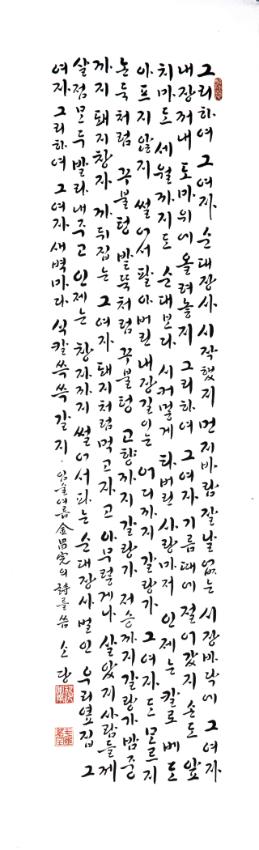 그리하여 그 여자 순대장사 시작했지 먼지바람 잘날 없는 시장바닥에 그 여자
내장 꺼내 도마위에 올려놓지 그리하여 그 여자 기름때에 절어갔지 손도 앞
치마도 세월까지도 순대보다 시커멓게 타버린 사랑마저 인제는 칼로 베도
아프지 않지 썰어서 팔아버린 내장길이는 어디까지 갈랑가 그 여자도 모르지
논둑처럼 꾸불텅 밭둑처럼 꾸불텅 고향까지 갈랑가 저승까지 갈랑가 밤중
까지 돼지창자 까뒤집는 그 여자 돼지처럼 먹고 자고 아무렇게나 살았지 사람들께
살점 모두 발라내주고 인제는 창자까지 썰어서 파는 순대장사 벌인 우리 옆집 그
여자 그리하여 그 여자 새벽마다 식칼 쓱쓱 갈지 · 여름 金昌完의 詩를 씀 소당